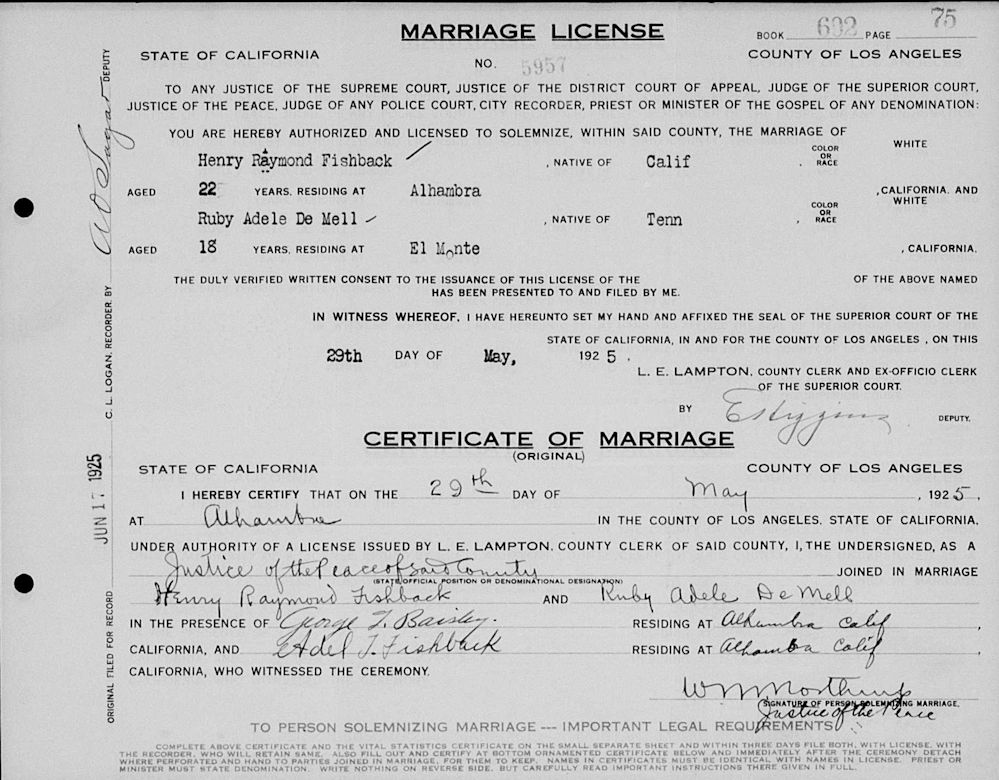 MARRIAGE LICENSE
BOOK 602 PAGE 75
STATE OF CALIFORNIA
COUNTY OF LOS ANGELES
NO. 5957
TO ANY JUSTICE OF THE SUPREME COURT, JUSTICE OF THE DISTRICT COURT OF APPEAL, JUDGE OF THE SUPERIOR COURT,
JUSTICE OF THE PEACE, JUDGE OF ANY POLICE COURT, CITY RECORDER, PRIEST OR MINISTER OF THE GOSPEL OF ANY DENOMINATION:
YOU ARE HEREBY AUTHORIZED AND LICENSED TO SOLEMNIZE, WITHIN SAID COUNTY, THE MARRIAGE OF
Henry Raymond Fishback , NATIVE OF Calif , COLOR OR RACE WHITE
AGED 22 YEARS, RESIDING AT Alhambra , CALIFORNIA, AND
Ruby Adele De Mell , NATIVE OF Tenn , COLOR OR RACE WHITE
AGED 18 YEARS, RESIDING AT El Monte , CALIFORNIA.
THE DULY VERIFIED WRITTEN CONSENT TO THE ISSUANCE OF THIS LICENSE OF THE OF THE ABOVE NAMED
HAS BEEN PRESENTED TO AND FILED BY ME.
IN WITNESS WHEREOF, I HAVE HEREUNTO SET MY HAND AND AFFIXED THE SEAL OF THE SUPERIOR COURT OF THE
STATE OF CALIFORNIA, IN AND FOR THE COUNTY OF LOS ANGELES , ON THIS
29th DAY OF May, 1925 .
L. E. LAMPTON, COUNTY CLERK AND EX-OFFICIO CLERK
OF THE SUPERIOR COURT.
BY E Higgins DEPUTY.
CERTIFICATE OF MARRIAGE
(ORIGINAL)
STATE OF CALIFORNIA
COUNTY OF LOS ANGELES
I HEREBY CERTIFY THAT ON THE 29th DAY OF May , 1925,
AT Alhambra IN THE COUNTY OF LOS ANGELES, STATE OF CALIFORNIA,
UNDER AUTHORITY OF A LICENSE ISSUED BY L. E. LAMPTON, COUNTY CLERK OF SAID COUNTY, I, THE UNDERSIGNED, AS A
Justice of the Peace of said County JOINED IN MARRIAGE
(STATE OFFICIAL POSITION OR DENOMINATIONAL DESIGNATION)
Henry Raymond Fishback AND Ruby Adele De Mell
IN THE PRESENCE OF George T. Baisley. RESIDING AT Alhambra Calif ,
CALIFORNIA, AND Adel T. Fishback RESIDING AT Alhambra Calif ,
CALIFORNIA, WHO WITNESSED THE CEREMONY.
W M Northrup
SIGNATURE OF PERSON SOLEMNIZING MARRIAGE.
Justice of the Peace
TO PERSON SOLEMNIZING MARRIAGE --- IMPORTANT LEGAL REQUIREMENTS
COMPLETE ABOVE CERTIFICATE AND THE VITAL STATISTICS CERTIFICATE ON THE SMALL SEPARATE SHEET AND WITHIN THREE DAYS FILE BOTH, WITH LICENSE, WITH
THE RECORDER, WHO WILL RETAIN SAME. ALSO FILL OUT AND CERTIFY AT BOTTOM ORNAMENTED CERTIFICATE BELOW AND IMMEDIATELY AFTER THE CEREMONY DETACH
WHERE PERFORATED AND HAND TO PARTIES JOINED IN MARRIAGE, FOR THEM TO KEEP. NAMES IN CERTIFICATES MUST BE IDENTICAL WITH NAMES IN LICENSE. PRIEST OR
MINISTER MUST STATE DENOMINATION. WRITE NOTHING ON REVERSE SIDE. BUT CAREFULLY READ IMPORTANT INSTRUCTIONS THERE GIVEN IN FULL.
ORIGINAL FILED FOR RECORD JUN 17 1925 C. L. LOGAN, RECORDER, BY DEPUTY